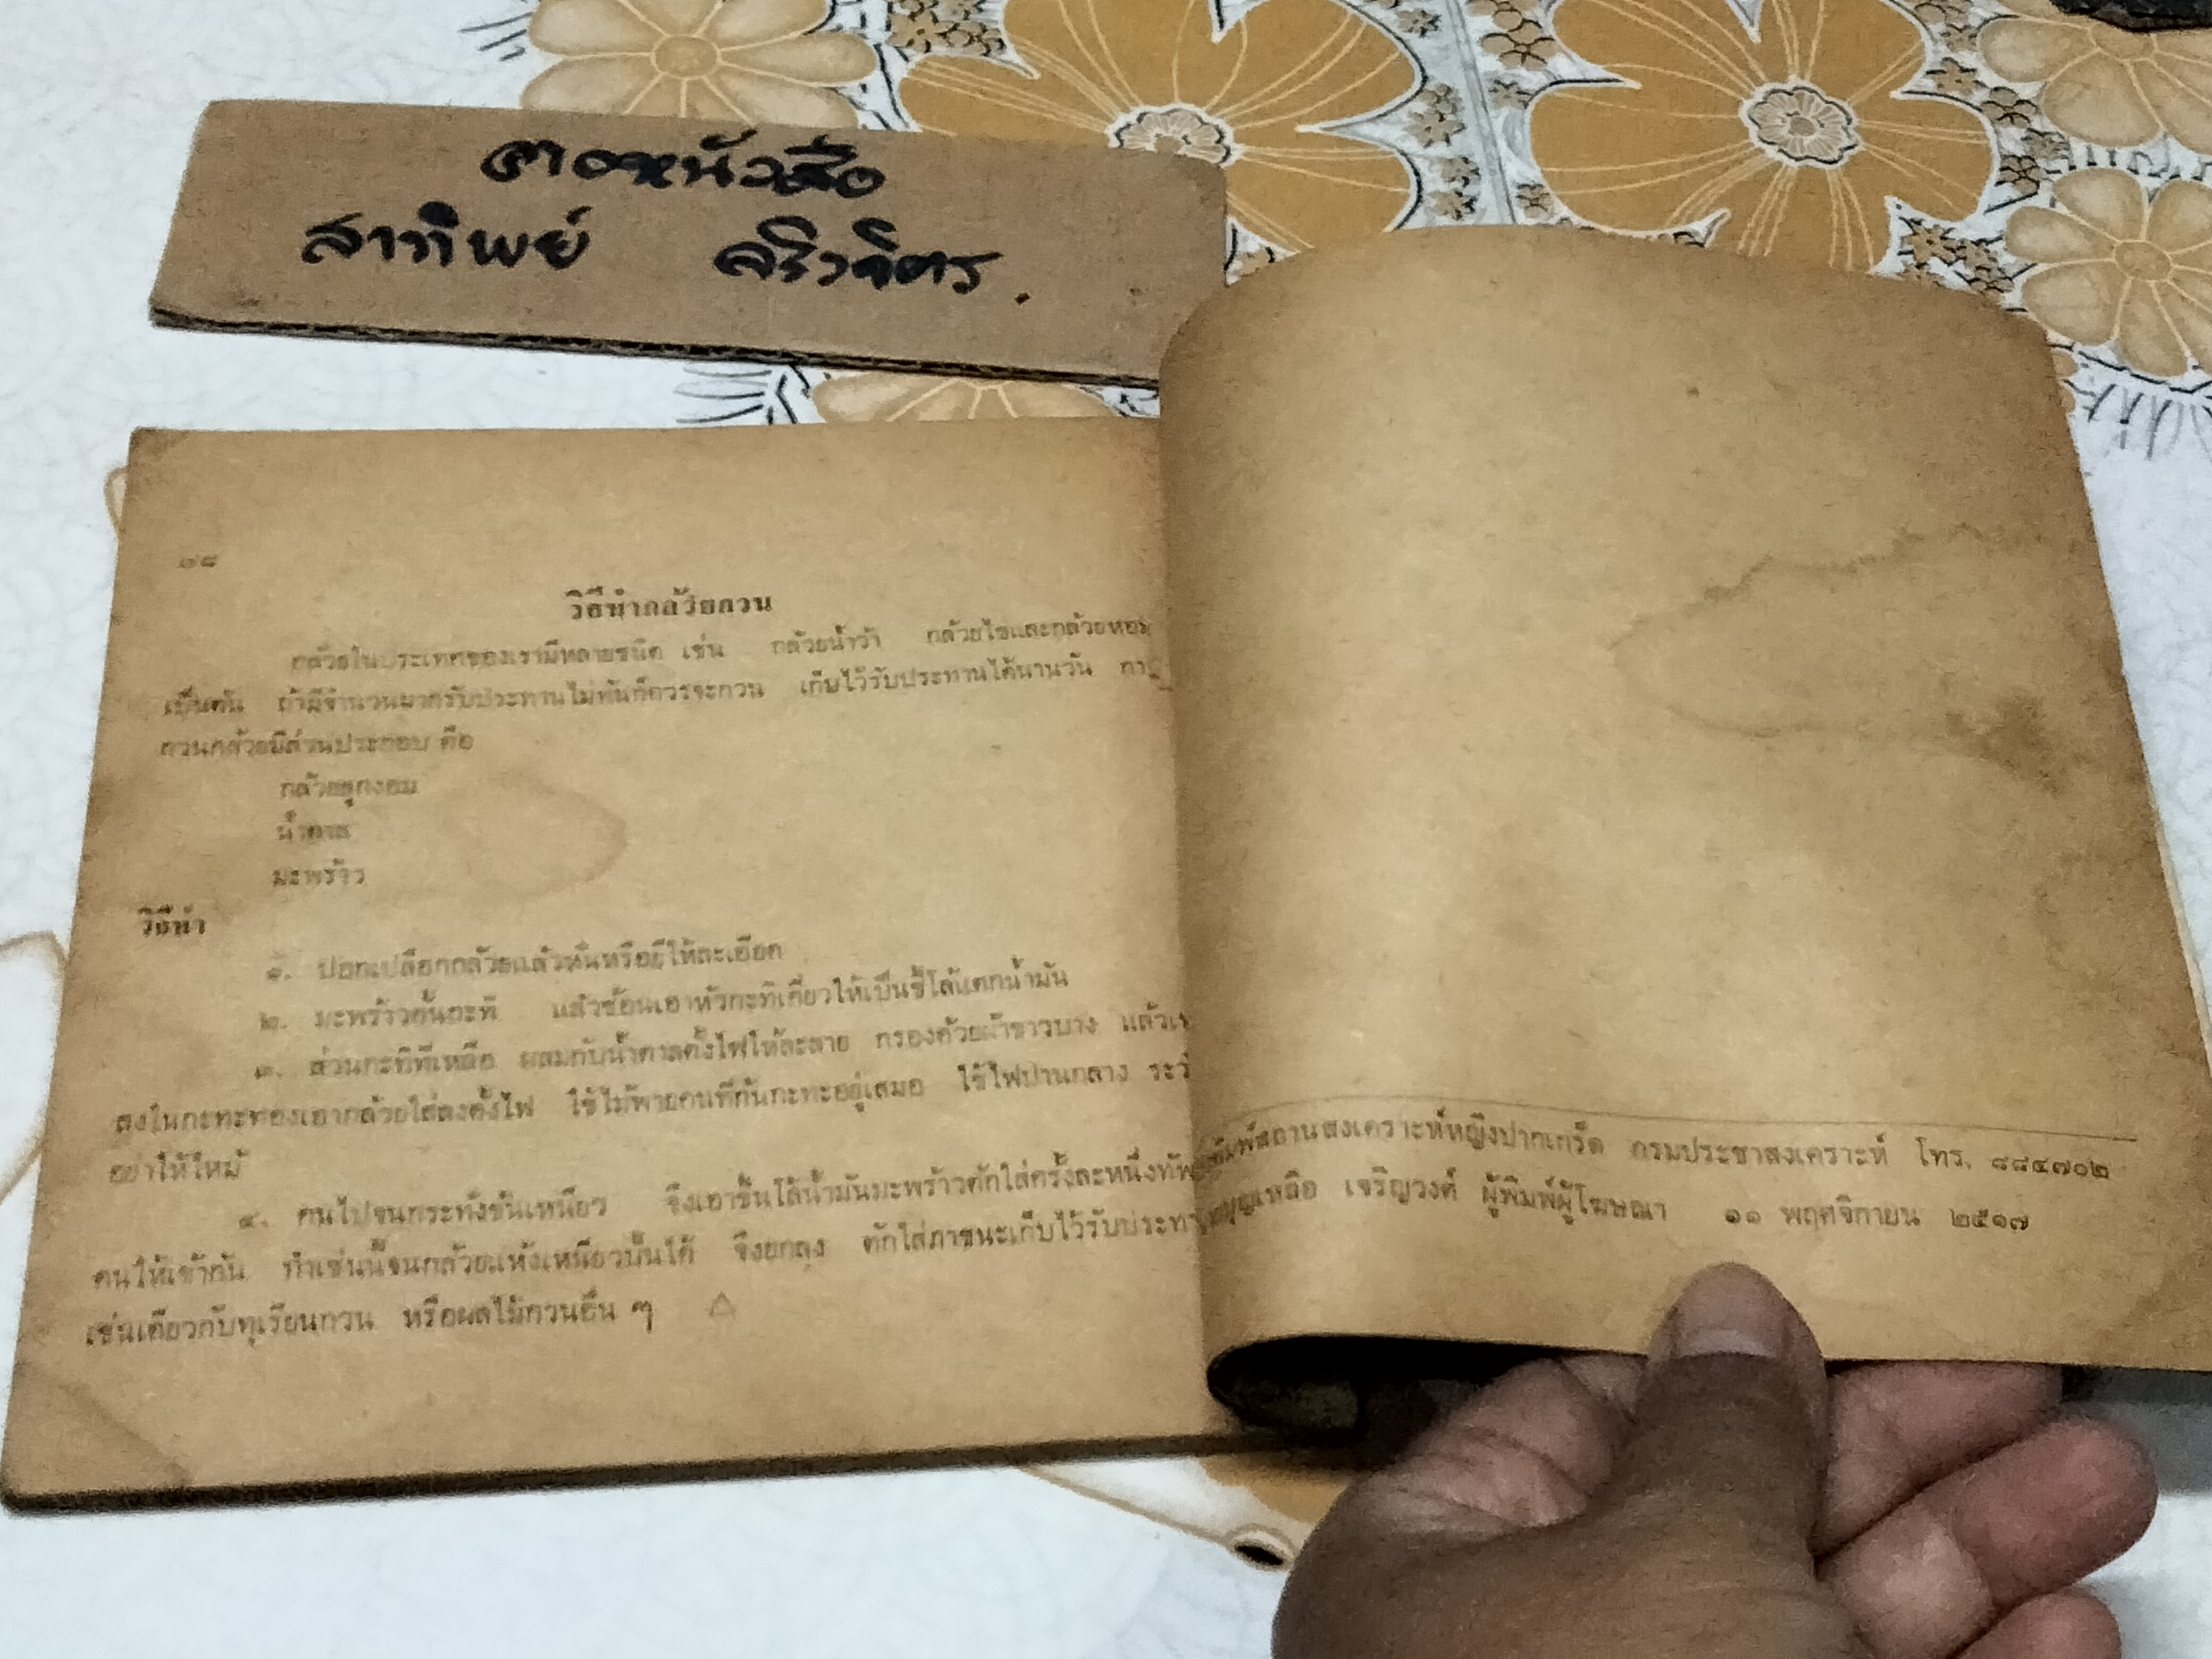 สาทิพย์ ศริวจิตร.
๗๘
วิธีทำกล้วยกวน
กล้วยในประเทศของเรามีหลายชนิด เช่น กล้วยน้ำว้า กล้วยไข่และกล้วยหอม
เป็นต้น ถ้ามีจำนวนมากรับประทานไม่ทันก็ควรจะกวน เก็บไว้รับประทานได้นานวัน
กวนกล้วยมีส่วนประกอบ คือ
กล้วยสุกงอม
น้ำตาล
มะพร้าว
วิธีทำ
๑. ปอกเปลือกกล้วยแล้วหั่นหรือยีให้ละเอียด
๒. มะพร้าวคั้นกะทิ แล้วช้อนเอาหัวกะทิเคี่ยวให้เป็นขี้โล้แตกน้ำมัน
๓. ส่วนกะทิที่เหลือ ผสมกับน้ำตาลตั้งไฟให้ละลาย กรองด้วยผ้าขาวบาง แล้วเท
ลงในกะทะทองเอากล้วยใส่ลงตั้งไฟ ใช้ไม้พายคนที่ก้นกะทะอยู่เสมอ ใช้ไฟปานกลาง
อย่าให้ไหม้
๔. คนไปจนกระทั่งข้นเหนียว จึงเอาขี้นโล้น้ำมันมะพร้าวตักใส่ครั้งละหนึ่งทัพ
คนให้เข้ากัน ทำเช่นนี้จนกล้วยแห้งเหนียวปั้นได้ จึงยกลง ตักใส่ภาชนะเก็บไว้รับประทาน
เช่นเดียวกับทุเรียนกวน หรือผลไม้กวนอื่น ๆ
พิมพ์สถานสงเคราะห์หญิงปากเกร็ด กรมประชาสงเคราะห์ โทร. ๘๘๔๗๐๒
บุญเหลือ เจริญวงศ์ ผู้พิมพ์ผู้โฆษณา ๑๑ พฤศจิกายน ๒๕๑๗